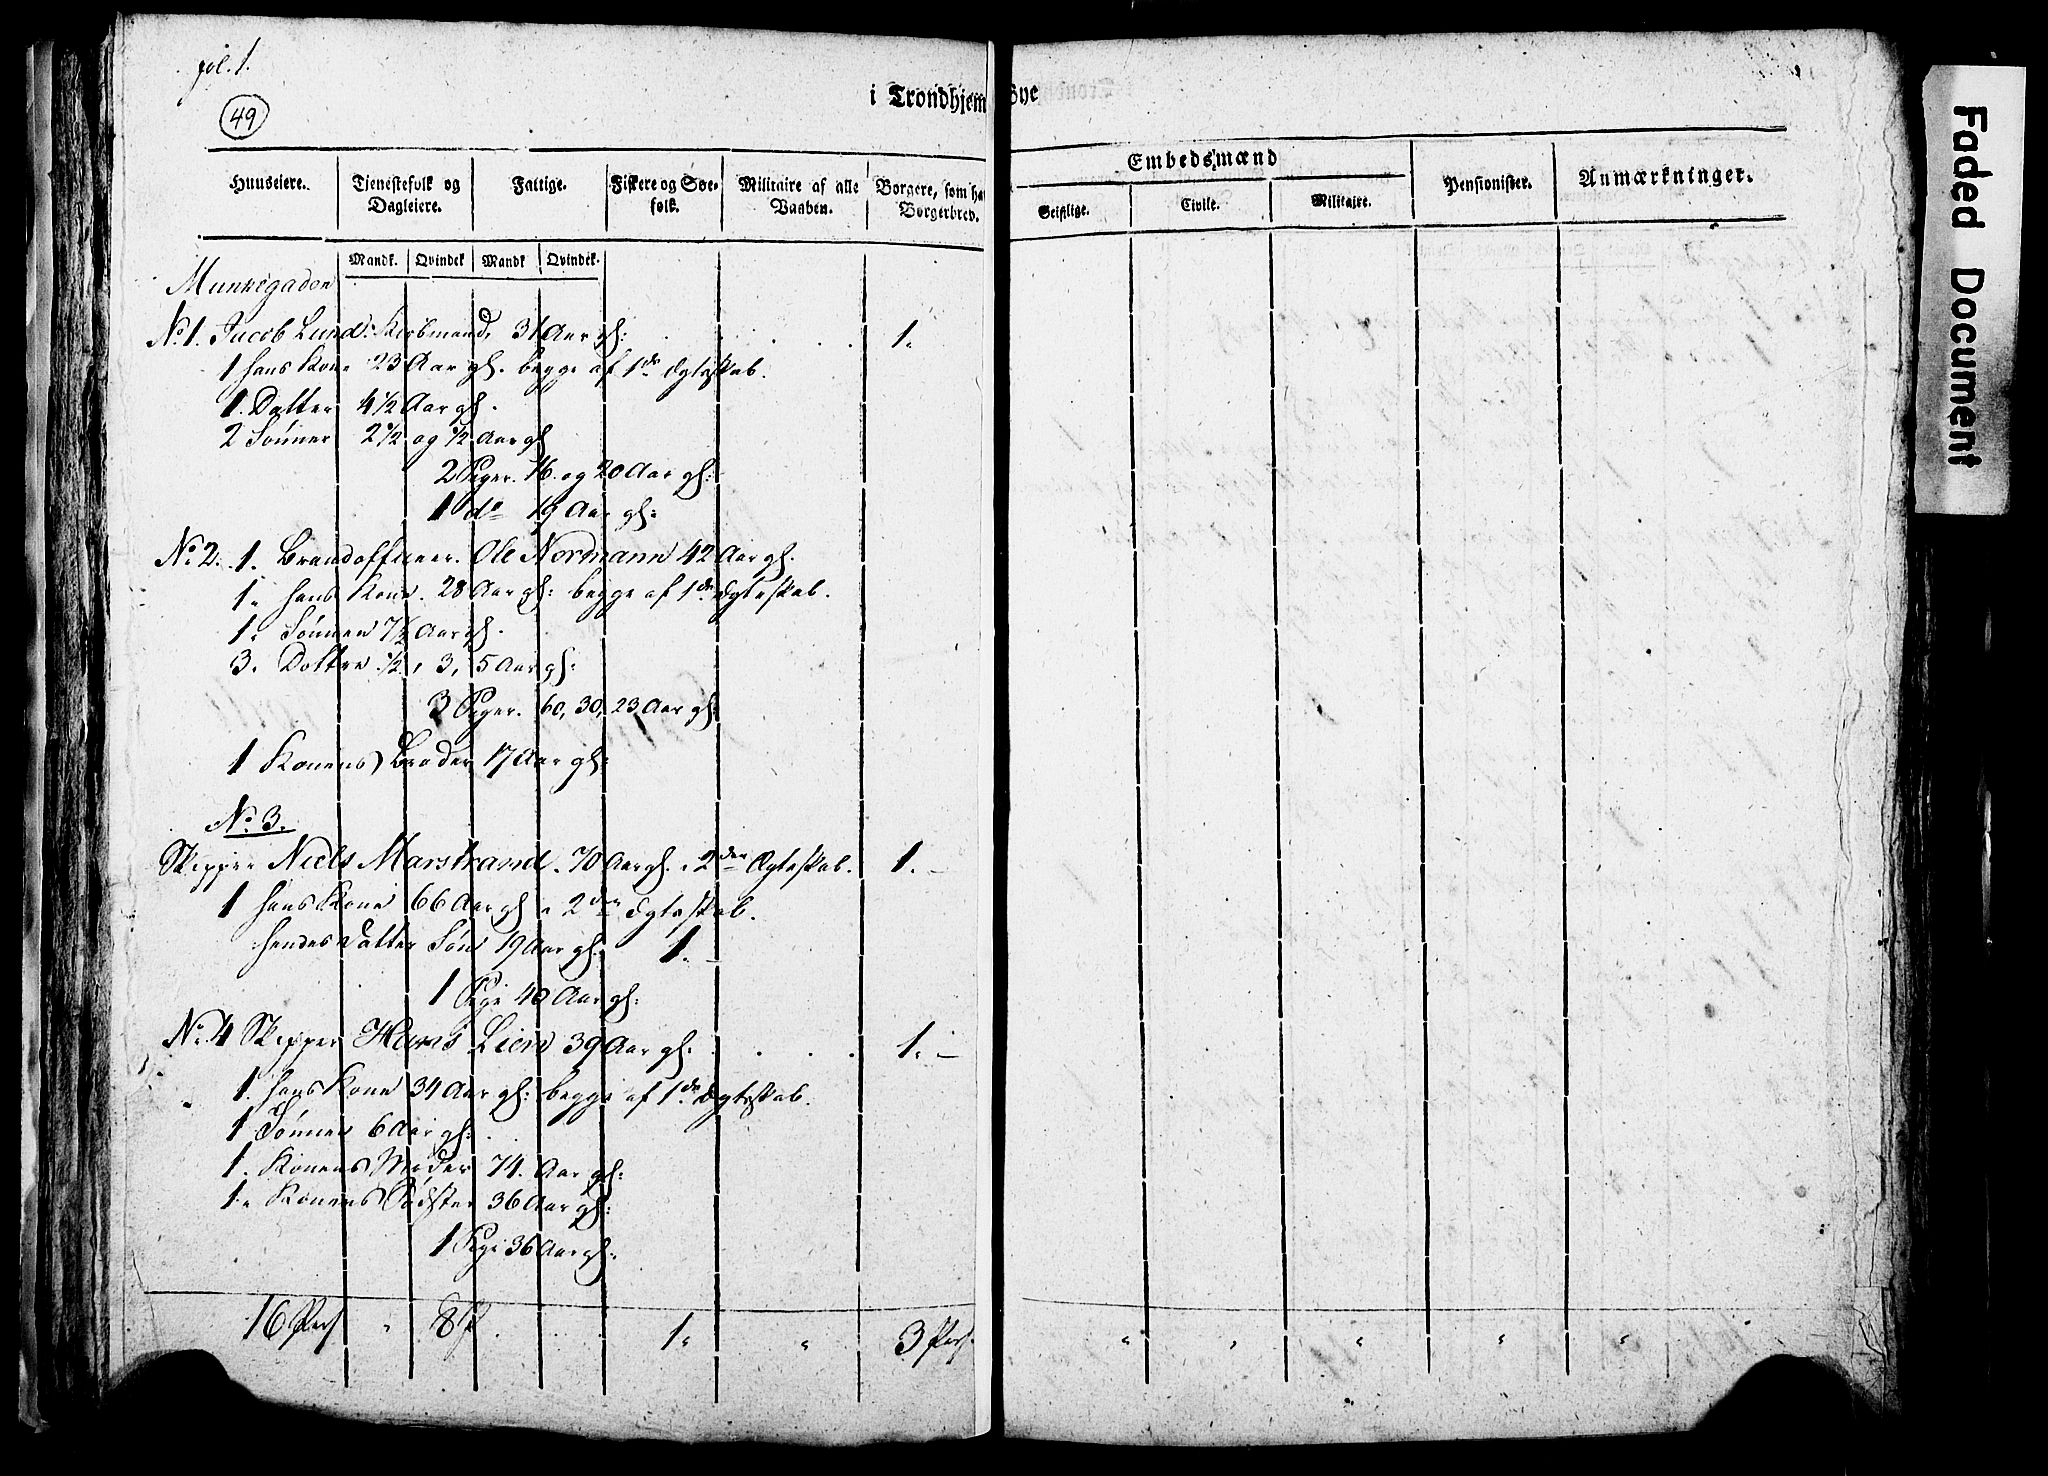 fol. 1.
49
i Trondhjem Bye
Huuseiere. Tjenestefolk og Dagleiere. Fattige. Fiskere og Søefolk. Militaire af alle Vaaben. Borgere, som ha Borgerbrev. Embedsmænd Pensionister. Anmærkninger.
Geistlige. Civile. Militaire.
Mandk. Qvindek Mandk Qvindek.
Munkegaden
No 1. Jacob Lund. Kiøbmand, 31 Aar gl: 1.
1 hans Kone 23 Aar gl. begge af 1de Ægteskab.
1. Datter 4 1/2 Aar gl.
2 Sønner 2 1/2 og 1/2 Aar gl
2 Piger. 16. og 20 Aar gl:
1 do 19 Aar gl:
No 2. 1. Brandofficeer. Ole Normann 42 Aar gl.
1. hans Kone. 28 Aar gl: begge af 1de Ægteskab.
1. Sønner 7 1/2 Aar gl.
3. Dottre 1/2, 3, 5 Aar gl:
3 Piger. 60, 30, 23 Aar gl:
1 Konens Broder 17 Aar gl:
No. 3.
Skipper Niels Marstrand. 70 Aar gl. 2den Ægteskab. 1.
1 hans Kone 66 Aar gl. 2den Ægteskab.
hendes Datter Søn 19 Aar gl: 1.
1 Pige 40 Aar gl:
No. 4 Skipper Hans Lien 39 Aar gl. 1.
1. hans Kone 34 Aar gl: begge af 1de Ægteskab.
1 Sønner 6 Aar gl:
1. Konens Moder 74. Aar gl:
1. Konens Södster 36 Aar gl:
1 Pige 36 Aar gl:
16 Pers 8 P. 1. 3 Pers.
Faded Document